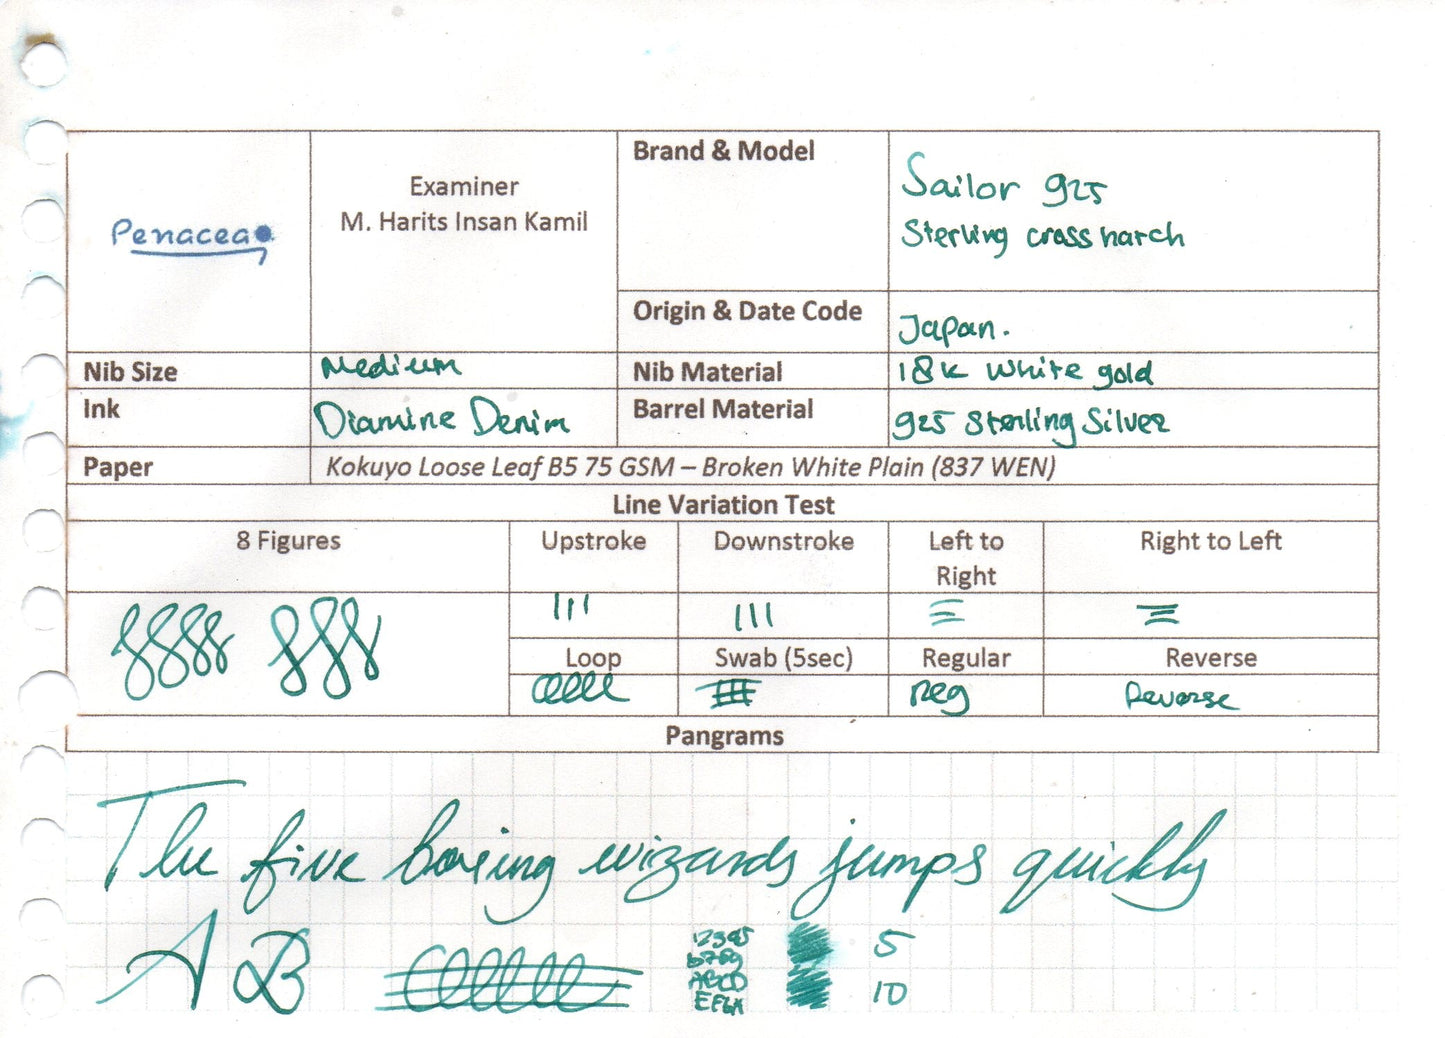 Penacea
Examiner
M. Harits Insan Kamil
Brand & Model
Sailor 925
Sterling cross harch
Origin & Date Code
Japan.
Nib Size
Medium
Nib Material
18k White gold
Ink
Diamine Denim
Barrel Material
925 Sterling Silver
Paper
Kokuyo Loose Leaf B5 75 GSM – Broken White Plain (837 WEN)
Line Variation Test
8 Figures
Upstroke
Downstroke
Left to
Right
Right to Left
Loop
Swab (5sec)
Regular
Reverse
Reg
Reverse
Pangrams
The five boxing wizards jumps quickly
A B
12345
6789
ABCD
5
10